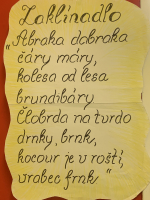 Zaklínadlo
"Abraka dabraka
čáry máry,
kolesa od lesa
brundibáry
Čłobrda na tvrdo
drnky, brnk,
kocour je v roští,
vrabec frnk"